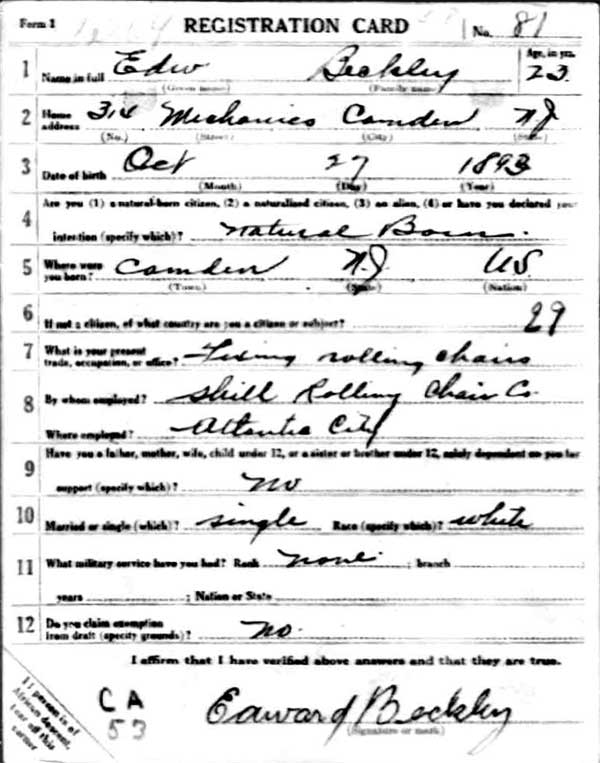 Form 1 REGISTRATION CARD No. 81
1 Name in full Edw Beckley Age, in yrs. 23
(Given name) (Family name)
2 Home address 314 Mechanics Camden N.J.
(No.) (Street) (City) (State)
3 Date of birth Oct 27 1893
(Month) (Day) (Year)
Are you (1) a natural-born citizen, (2) a naturalized citizen, (3) an alien, (4) or have you declared your
4 intention (specify which)? Natural Born.
5 Where were you born? Camden N.J. US
(Town) (State) (Nation)
6 If not a citizen, of what country are you a citizen or subject? 29
7 What is your present trade, occupation, or office? Fixing rolling chairs
8 By whom employed? Shill Rolling Chair Co
Where employed? Atlantic City
9 Have you a father, mother, wife, child under 12, or a sister or brother under 12, solely dependent on you for
support (specify which)? No
10 Married or single (which)? single Race (specify which)? white
11 What military service have you had? Rank none ; branch
years ; Nation or State
12 Do you claim exemption from draft (specify grounds)? No.
I affirm that I have verified above answers and that they are true.
If person is of
African descent,
tear off this
corner
CA
53
Edward Beckley
(Signature or mark)